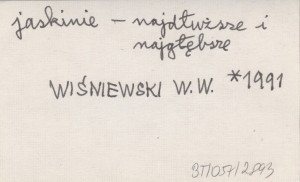 jaskinie – najdłuższe i
najgłębsze
WIŚNIEWSKI W.W. *1991
BT/057/2893